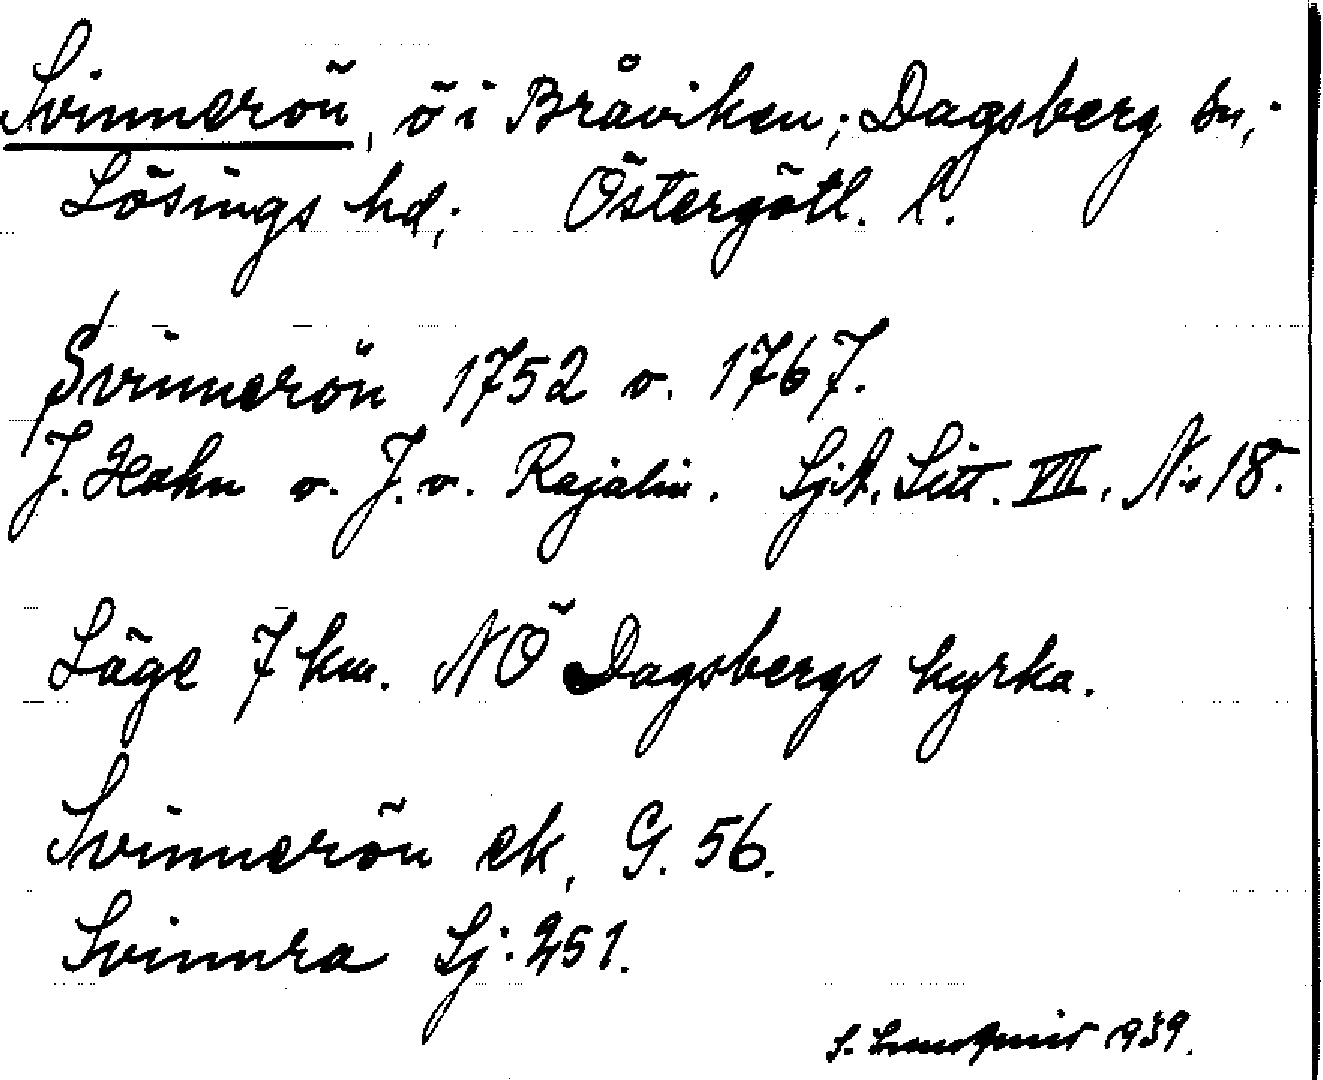 Svinnerön, ö i Bråviken; Dagsberg sn,;
Lösings hd,; Östergötl. l.
Svinnerön 1752 o. 1767.
J. Hahn o. J. v. Rajalin. SjA, Litt. VII, No 18.
Läge 7 km. NÖ Dagsbergs kyrka.
Svinnerön ek, G. 56.
Svinnra Sj: 251.
S. Lundqvist 1939.